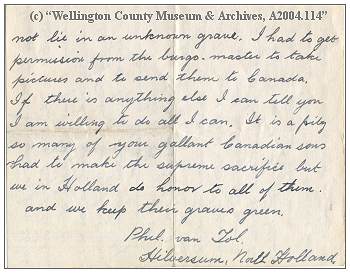 (c) "Wellington County Museum & Archives, A2004.114"
not lie in an unknown grave. I had to get
permission from the burgo-master to take
pictures and to send them to Canada.
If there is anything else I can tell you
I am willing to do all I can. It is a pity
so many of your gallant Canadian sons
had to make the supreme sacrifice but
we in Holland do honor to all of them.
and we keep their graves green.
Phil. van Tol.
Hilversum, North Holland.